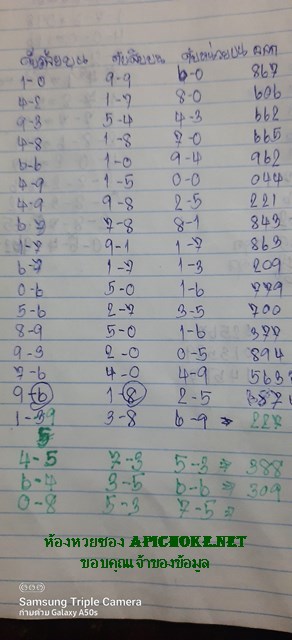 ดับร้อยบน ดับสิบบน ดับหน่วยบน ผล
1-0 9-9 6-0 867
4-8 1-7 8-0 606
9-3 5-4 4-3 662
4-8 1-8 7-0 665
6-6 1-0 9-4 962
4-9 1-5 0-0 044
4-9 9-8 2-5 221
6-7 7-8 8-1 843
1-7 9-1 1-7 863
6-7 1-7 1-3 209
0-6 5-0 1-6 779
5-6 2-7 3-5 700
8-9 5-0 1-6 377
9-3 2-0 0-5 894
7-6 4-0 4-9 563
9-6 1-8 2-5 687
1-59 3-8 6-9 → 227
5
4-5 7-3 5-3 → 388
6-4 3-5 6-6 → 309
0-8 5-3 7-5 =
ห้องหวยซอง APICHOKE.NET
ขอบคุณเจ้าของข้อมูล
Samsung Triple Camera
ถ่ายด้วย Galaxy A50s